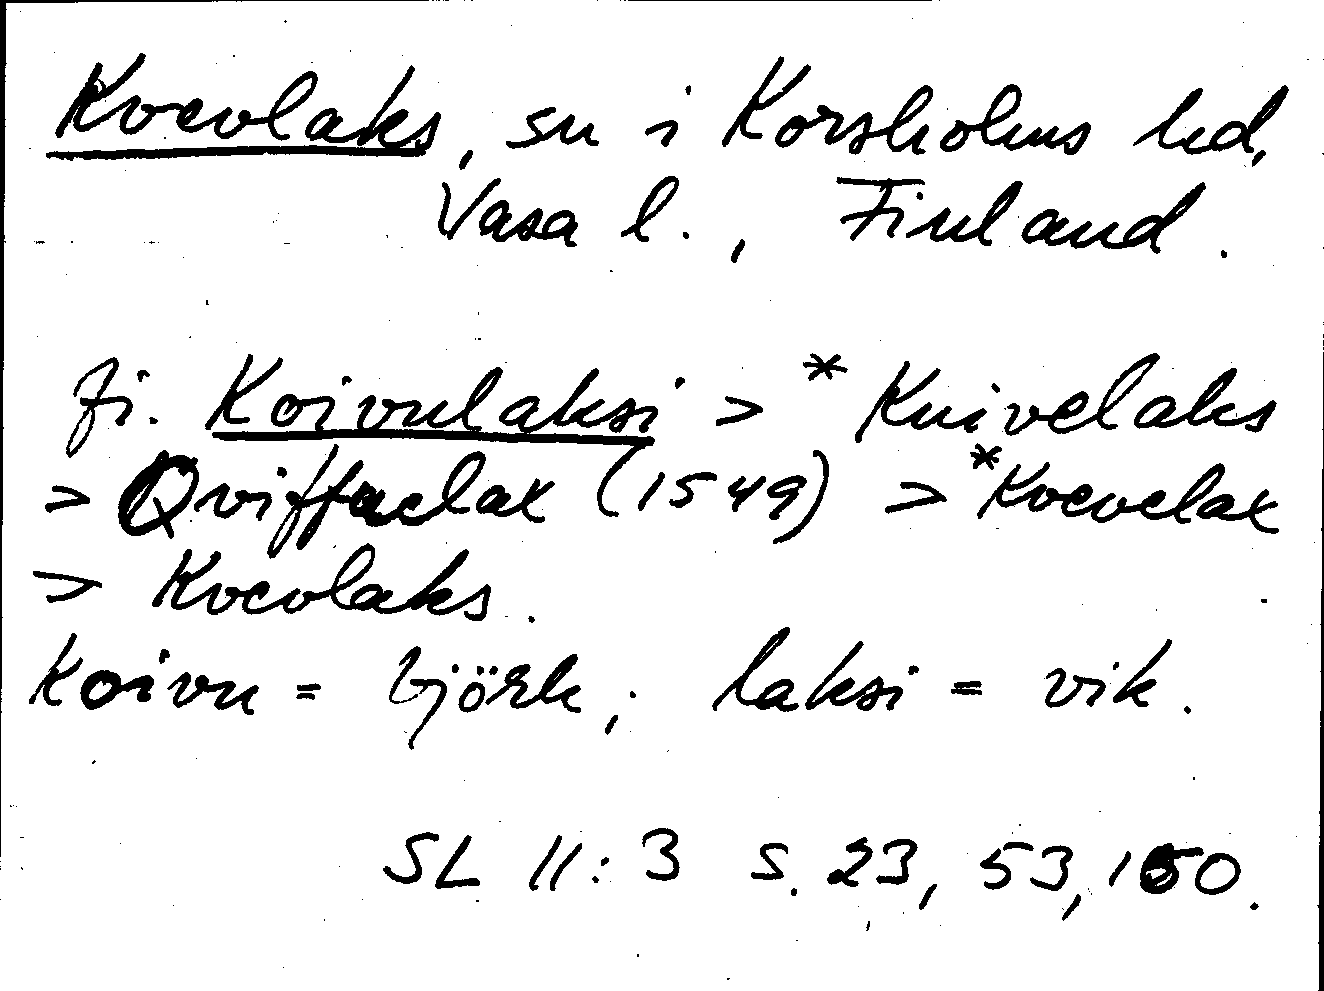 Kvevlaks, sn i Korsholms hd,
Vasa l., Finland.
fi. Koivulaksi > *Kuivelaks
> Qviffuelax (1549) > *Kvevelax
> Kvevlaks.
Koivu = björk; laksi = vik.
SL II: 3 s. 23, 53, 150.